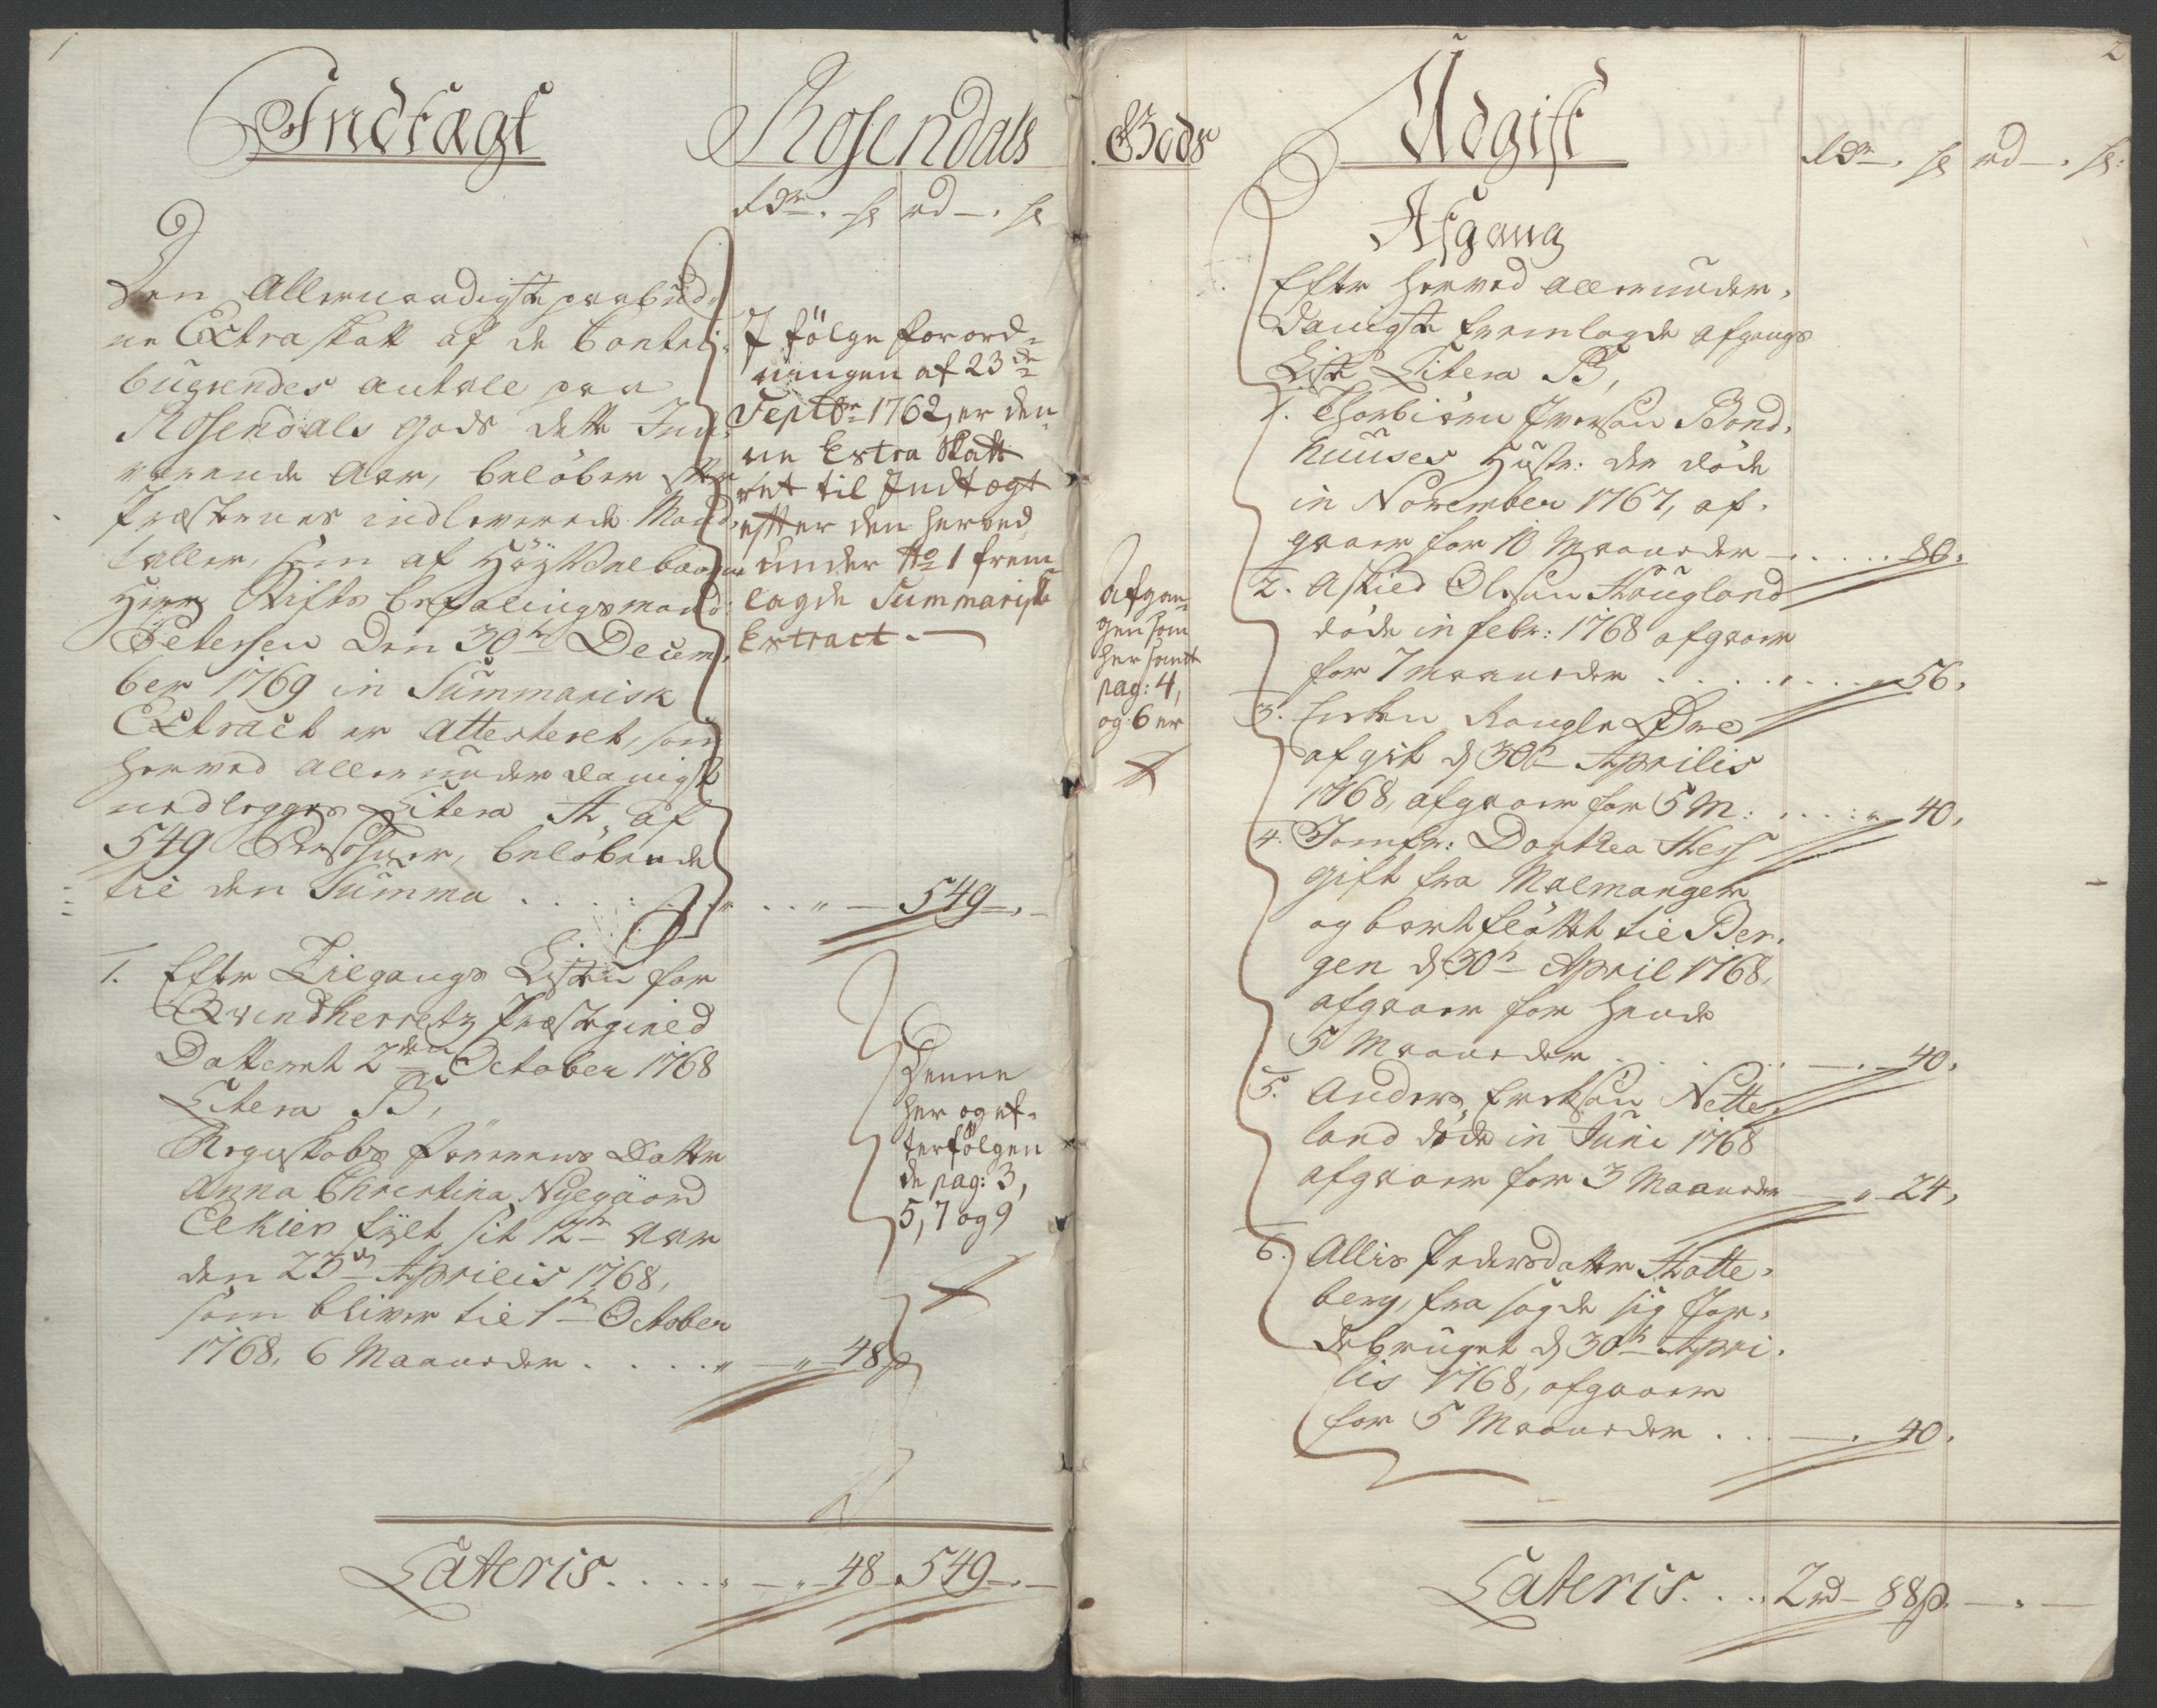 1
Indtægt
Rosendals
rdr. ß rd. ß
Den Allernaadigste paabud-
ne Extra skatt af de Contri-
buerendes antale paa
Rosendals gods dette Inde-
værende aar, beløber efter
Præsternes indleverede Mand-
taller, som af Høy Velbaarne
Herr Stifts befalingsmand
Petersen den 30te Decem-
ber 1769 in Summarisk
Extract er attesteret, som
herved allerunderdanigst
nedlegges Litera A, af
549 Persohner, beløbende
til den Summa . . . . 549
I følge forord-
ningen af 23de
Septbr 1762, er den-
ne Extra Skatt
ført til Indtægt
efter den herved
under No 1 frem-
lagde Summariske
Extract.
1. Efter Tilgangs Listen for
Qvindherretz Præstegield
Datteret 2den October 1768
Litera B,
Regnskabs førerens Datter
Anna Christina Nyegaard
Eekier fyldt sit 12te aar
den 23de Aprilis 1768,
som bliver til 1te October
1768, 6 Maaneder . . . . 48 ß
Denne
her og ef-
terfølgen
de pag: 3,
5, 7 og 9
Lateris . . . . 48 . 549
2
Gods
Udgift
rdr. ß rd. ß
Afgang
Efter herved allerunder-
danigste fremlagde afgangs
Liste Litera B,
1. Thorbiørn Iversøn Bond-
huuses Hustr: der døde
in November 1767, af-
gaaer for 10 Maaneder . . . . 80.
2. Askied Olsøn Hougland
døde in febr: 1768 afgaaer
for 7 maaneder . . . . 56,
3. Enken Raugle Øre
afgik d 30te Aprilis
1768, afgaaer for 5 M: . . . . 40,
4. Jomfr: Dorthea Hess
gift fra Malmanger
og bortfløttet til Ber-
gen d 30te April 1768,
afgaaer for hende
5 Maaneder . . . . 40.
5. Anders Erichsøn Nette-
land døde in Juni 1768
afgaaer for 3 Maaneder 24,
6. Allis Pedersdatter Hatte-
berg, fra sagde sig Jor-
debruget d 30te Apri-
lis 1768, afgaaer
for 5 Maaneder . . . 40.
Afgan-
gen som
her samt
pag: 4,
og 6 er
Lateris . . . 2 rd 88 ß.